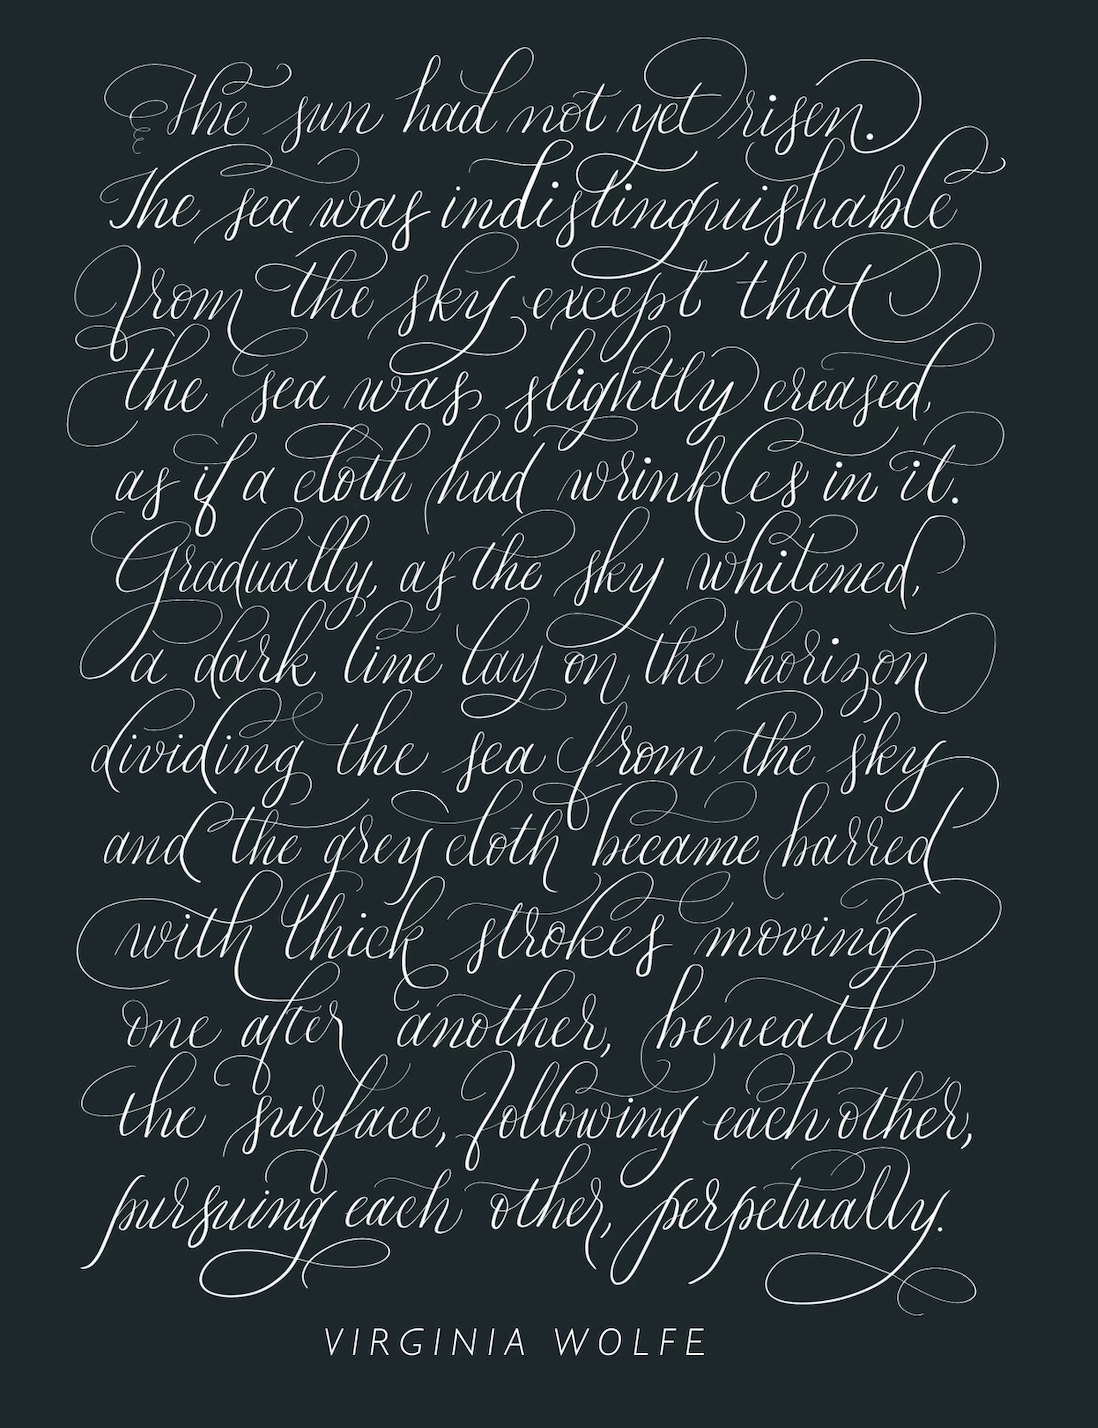 The sun had not yet risen.
The sea was indistinguishable
from the sky except that
the sea was slightly creased,
as if a cloth had wrinkles in it.
Gradually, as the sky whitened,
a dark line lay on the horizon
dividing the sea from the sky
and the grey cloth became barred
with thick strokes moving
one after another, beneath
the surface, following each other,
pursuing each other, perpetually.
VIRGINIA WOLFE